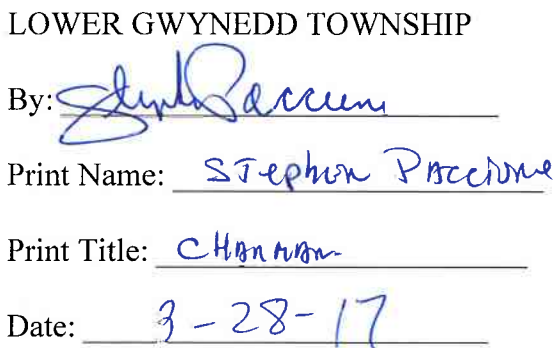 LOWER GWYNEDD TOWNSHIP
By: Stephen Paccione
Print Name: Stephen Paccione
Print Title: CHAIRMAN
Date: 3-28-17